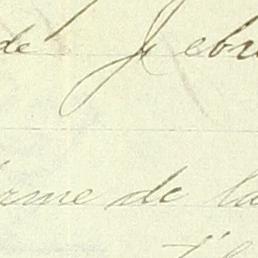 de Febre
rme de la